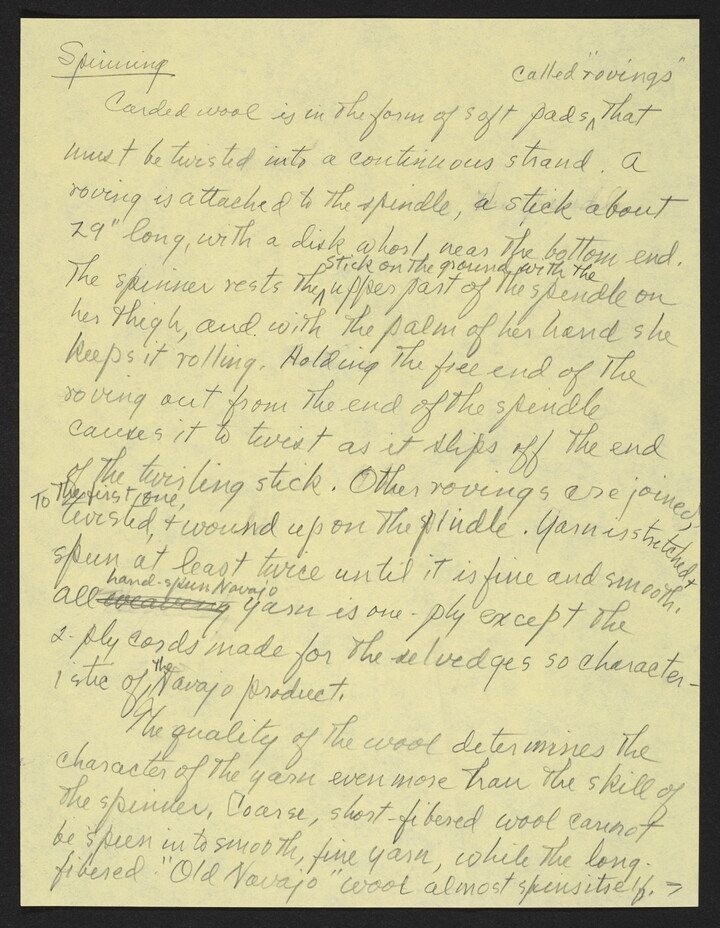 Spinning
called "rovings"
Carded wool is in the form of soft pads, that
must be twisted into a continuous strand. A
roving is attached to the spindle, a stick about
29" long, with a disk whorl near the bottom end.
stick on the ground, with the
The spinner rests the upper part of the spindle on
her thigh, and with the palm of her hand she
keeps it rolling. Holding the free end of the
roving out from the end of the spindle
causes it to twist as it slips off the end
of the twirling stick. Other rovings are joined,
To the first one,
twisted, + wound up on the spindle. Yarn is stretched +
spun at least twice until it is fine and smooth.
hand-spun Navajo
All weaving yarn is one-ply except the
2-ply cords made for the selvedges so character-
istic of the Navajo product.
The quality of the wool determines the
character of the yarn even more than the skill of
the spinner. Coarse, short-fibered wool cannot
be spun into smooth, fine yarn, while the long-
fibered "Old Navajo" wool almost spins itself. →